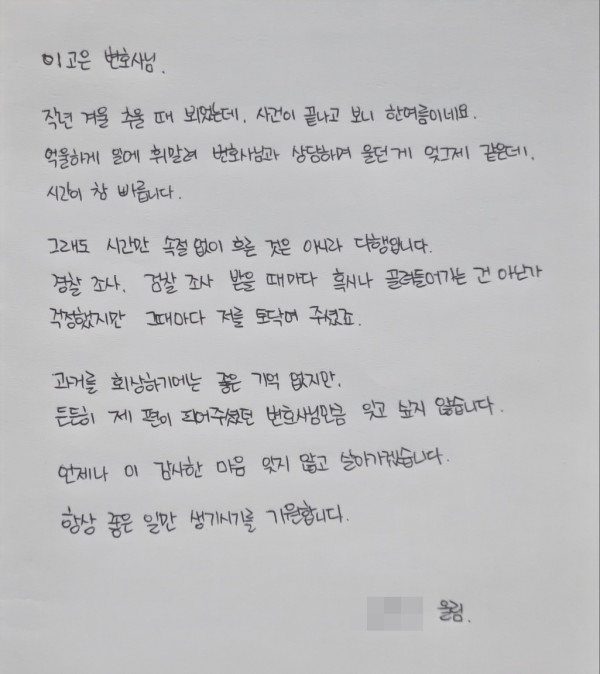 이고은 변호사님.
작년 겨울 추울 때 뵈었는데. 사건이 끝나고 보니 한여름이네요.
억울하게 일에 휘말려 변호사님과 상담하며 울던 게 엊그제 같은데.
시간이 참 빠릅니다.
그래도 시간만 속절없이 흐른 것은 아니라 다행입니다.
경찰 조사. 검찰 조사 받을 때마다 혹시나 끌려들어가는 건 아닌가
걱정했지만 그때마다 저를 토닥여 주셨죠.
과거를 회상하기에는 좋은 기억 없지만.
든든히 제 편이 되어주셨던 변호사님만큼 잊고 싶지 않습니다.
언제나 이 감사한 마음 잊지 않고 살아가겠습니다.
항상 좋은 일만 생기시기를 기원합니다.
올림.